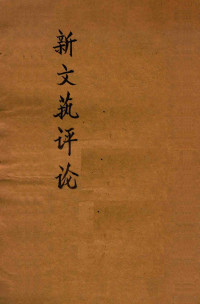 新文执评论